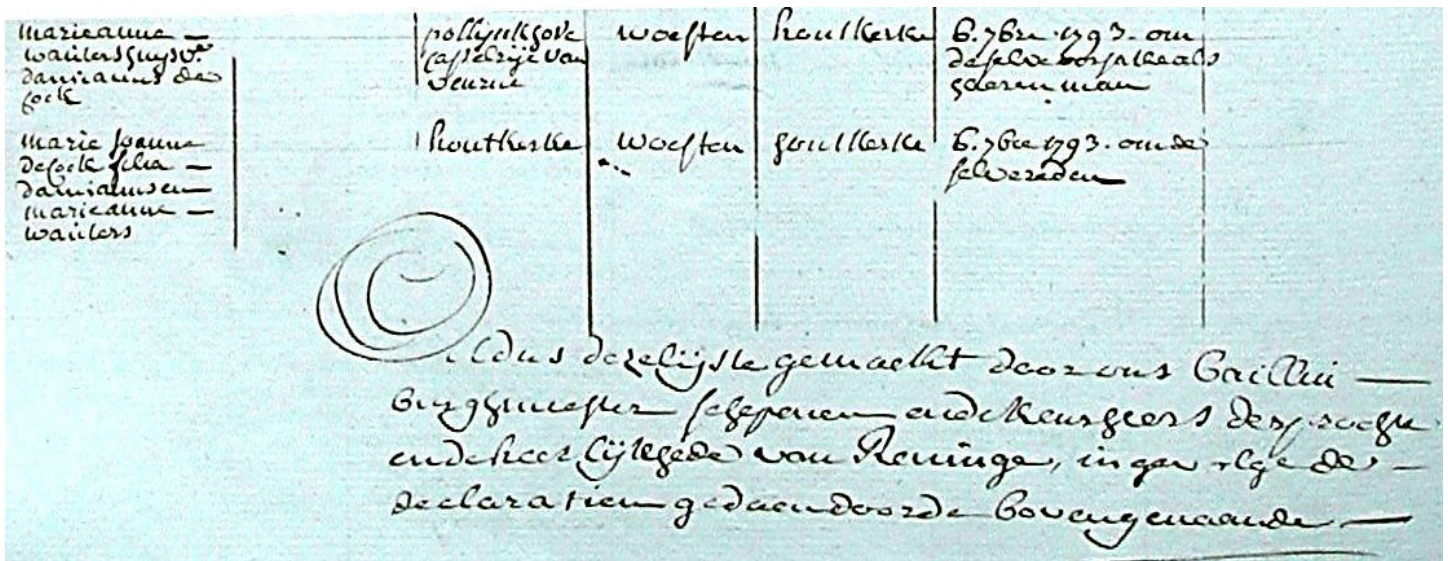 marieanne —
wauters huysve
damianus de
Cock
pollijnkhove
casselrije van
veurne
woesten
houtkerke
6. 7bre 1793. om
deselve oorsaeke als
haeren man
marie joanne
deCock filia —
damianus en
marieanne —
wauters
houtkerke
woesten
houtkerke
6. 7bre 1793. om de
selve reden
Aldus deze lijste gemaekt door ons Bailliu —
Burghmeester schepenen ende Keurheers der prochie
ende heerlijkhede van Reninge, in gevolge de —
declaratien gedaen door de bovengenaemde —